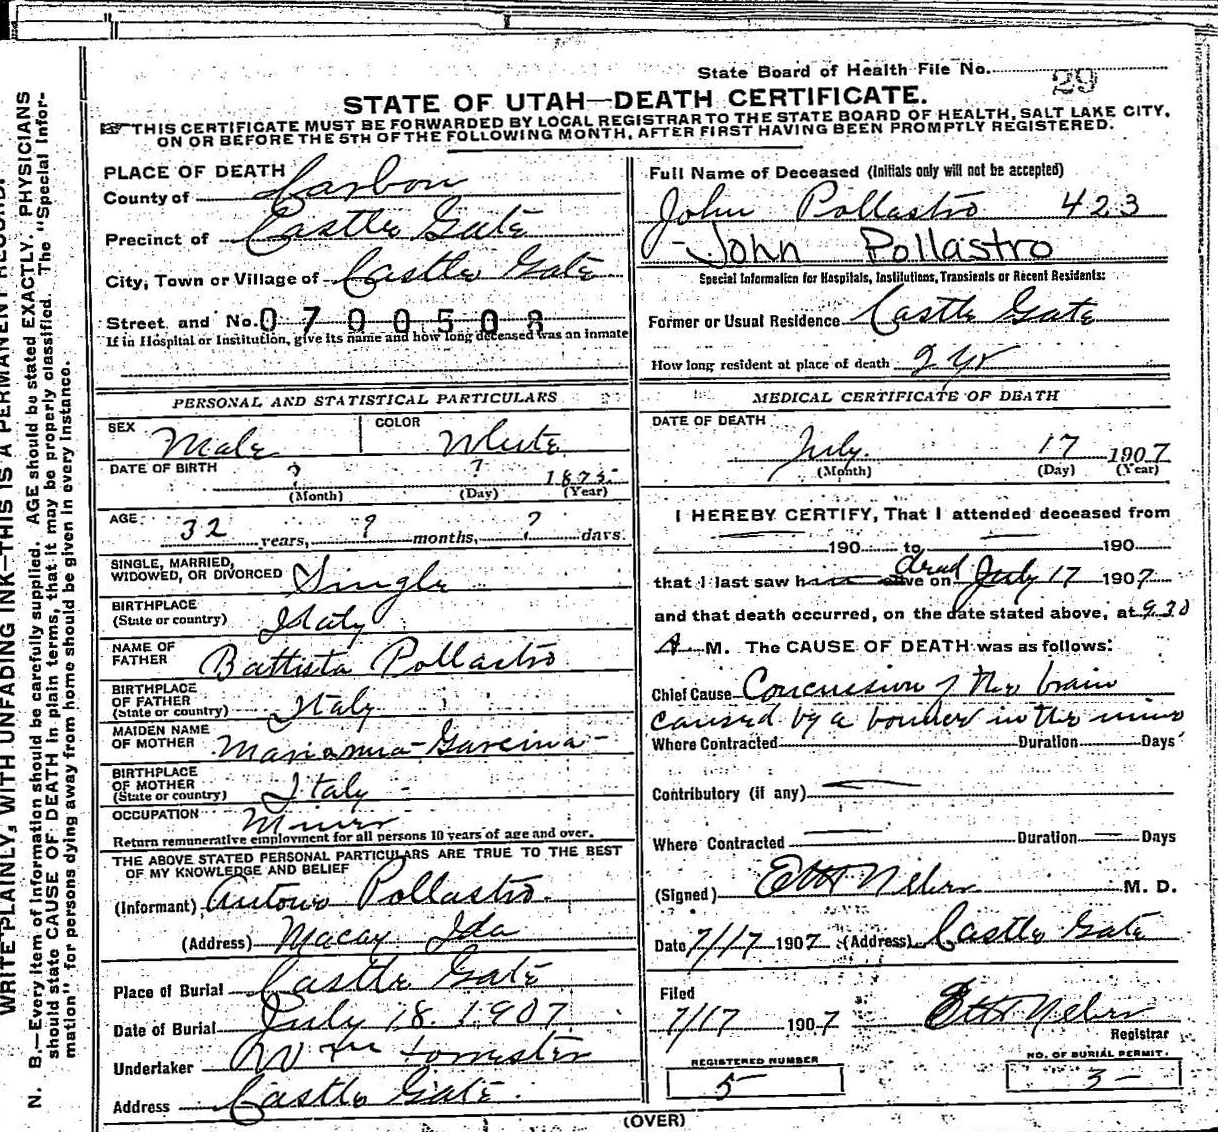 State Board of Health File No. 29
STATE OF UTAH—DEATH CERTIFICATE.
THIS CERTIFICATE MUST BE FORWARDED BY LOCAL REGISTRAR TO THE STATE BOARD OF HEALTH, SALT LAKE CITY,
ON OR BEFORE THE 5TH OF THE FOLLOWING MONTH, AFTER FIRST HAVING BEEN PROMPTLY REGISTERED.
WRITE PLAINLY, WITH UNFADING INK—THIS IS A PERMANENT RECORD.
N. B.—Every item of information should be carefully supplied. AGE should be stated EXACTLY. PHYSICIANS
should state CAUSE OF DEATH in plain terms, that it may be properly classified. The "Special Infor-
mation" for persons dying away from home should be given in every instance.
PLACE OF DEATH
County of Carbon
Precinct of Castle Gate
City, Town or Village of Castle Gate
Street and No. 0700508
If in Hospital or Institution, give its name and how long deceased was an inmate
PERSONAL AND STATISTICAL PARTICULARS
SEX Male COLOR White
DATE OF BIRTH ? ? 1875
(Month) (Day) (Year)
AGE 32 years, ? months, ? days.
SINGLE, MARRIED,
WIDOWED, OR DIVORCED Single
BIRTHPLACE
(State or country) Italy
NAME OF
FATHER Battista Pollastro
BIRTHPLACE
OF FATHER
(State or country) Italy
MAIDEN NAME
OF MOTHER
BIRTHPLACE
OF MOTHER
(State or country) Italy
OCCUPATION Miner
Return remunerative employment for all persons 10 years of age and over.
THE ABOVE STATED PERSONAL PARTICULARS ARE TRUE TO THE BEST
OF MY KNOWLEDGE AND BELIEF
(Informant) Antono Pollastro.
(Address) Macay Ida
Place of Burial Castle Gate
Date of Burial July 18. 1907
Undertaker
Address Castle Gate.
Full Name of Deceased (Initials only will not be accepted)
John Pollastro 423
John Pollastro
Special Information for Hospitals, Institutions, Transients or Recent Residents:
Former or Usual Residence Castle Gate
How long resident at place of death 2 yr
MEDICAL CERTIFICATE OF DEATH
DATE OF DEATH
July 17 1907
(Month) (Day) (Year)
I HEREBY CERTIFY, That I attended deceased from
190 to 190
dead
that I last saw h alive on July 17 1907
and that death occurred, on the date stated above, at 9.30
A M. The CAUSE OF DEATH was as follows:
Chief Cause Concussion of the brain
caused by a bounce in the mine
Where Contracted Duration Days
Contributory (if any)
Where Contracted Duration Days
(Signed) M. D.
Date 7/17 1907 (Address) Castle Gate
Filed
7/17 1907
Registrar
REGISTERED NUMBER
5
NO. OF BURIAL PERMIT.
3
(OVER)